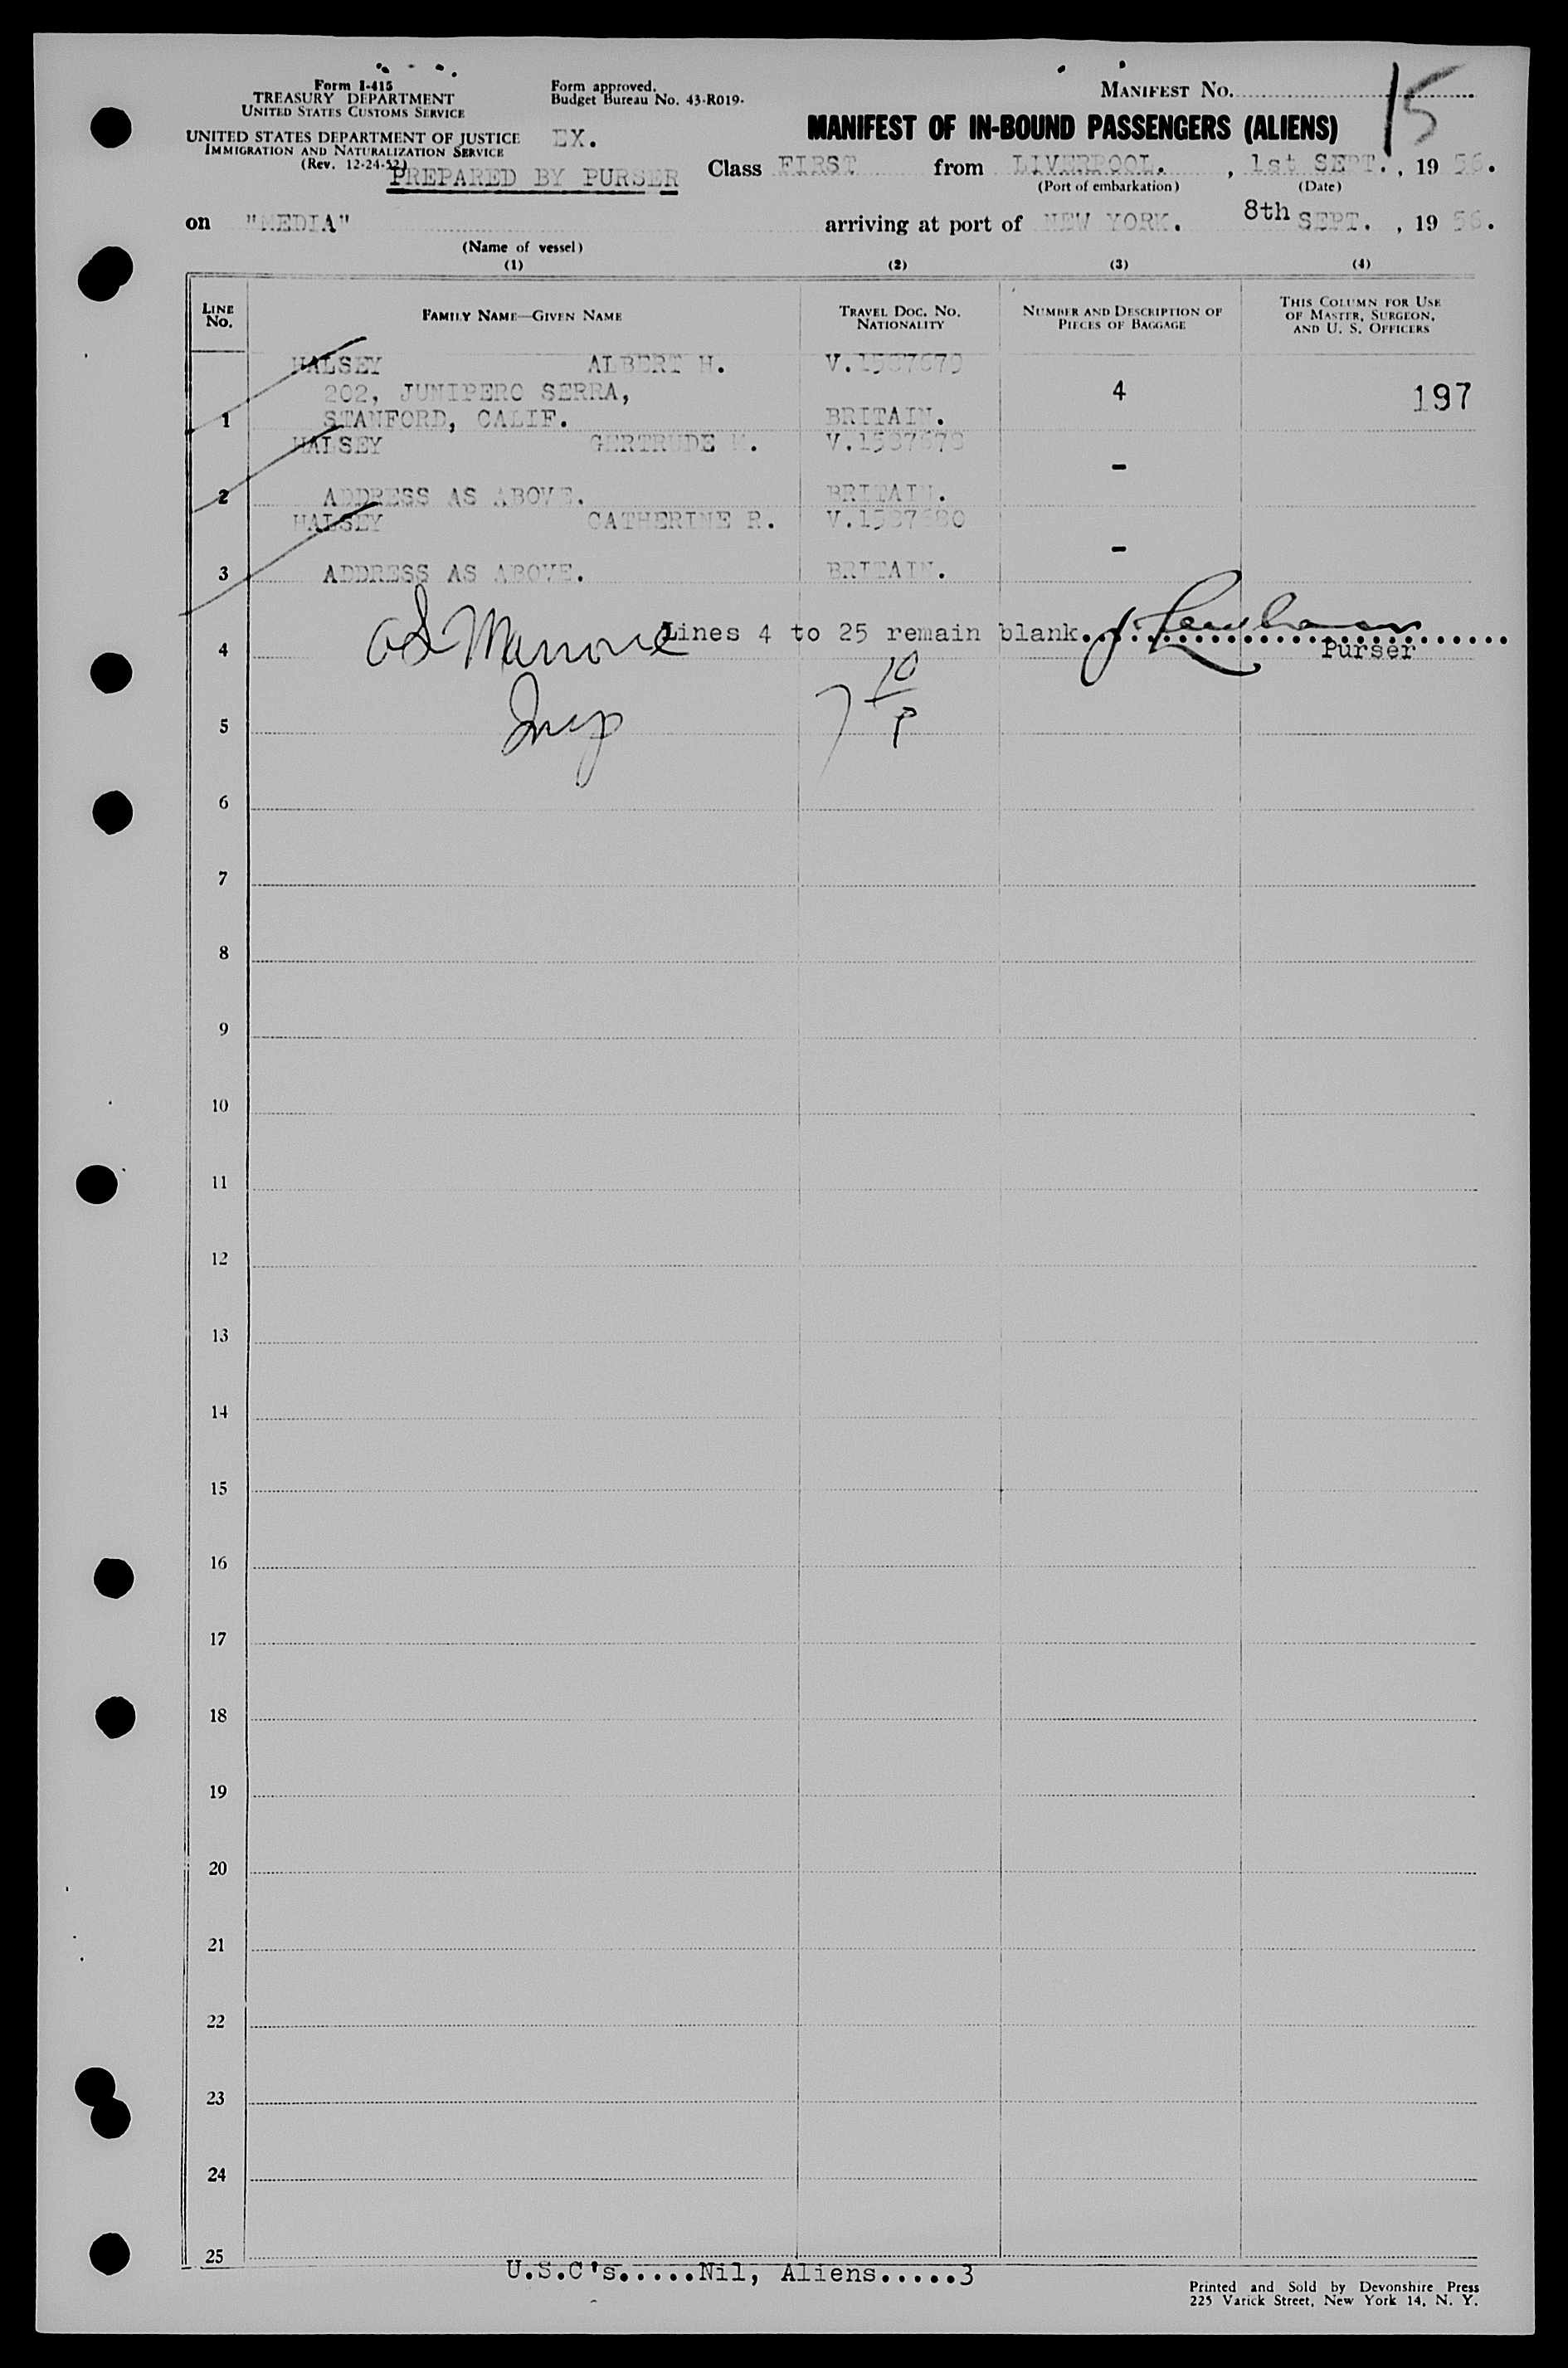 Form I-415
TREASURY DEPARTMENT
UNITED STATES CUSTOMS SERVICE
UNITED STATES DEPARTMENT OF JUSTICE
IMMIGRATION AND NATURALIZATION SERVICE
(Rev. 12-24-52)
Form approved.
Budget Bureau No. 43-R019.
EX.
PREPARED BY PURSER
MANIFEST NO. 15
MANIFEST OF IN-BOUND PASSENGERS (ALIENS)
Class FIRST from LIVERPOOL. , 1st SEPT. , 19 56.
(Port of embarkation) (Date)
on "MEDIA" arriving at port of NEW YORK. 8th SEPT. , 19 56.
(Name of vessel)
(1) (2) (3) (4)
LINE NO. FAMILY NAME—GIVEN NAME TRAVEL DOC. NO. NATIONALITY NUMBER AND DESCRIPTION OF PIECES OF BAGGAGE THIS COLUMN FOR USE OF MASTER, SURGEON, AND U. S. OFFICERS
HALSEY ALBERT H. V.1587679
202, JUNIPERO SERRA, 4 197
1 STANFORD, CALIF. BRITAIN.
HALSEY GERTRUDE M. V.1587678
-
2 ADDRESS AS ABOVE. BRITAIN.
HALSEY CATHERINE R. V.1587680
-
3 ADDRESS AS ABOVE. BRITAIN.
4 Lines 4 to 25 remain blank.
Purser
5 Insp
6
7
8
9
10
11
12
13
14
15
16
17
18
19
20
21
22
23
24
25
U.S.C's.....Nil, Aliens.....3
Printed and Sold by Devonshire Press
225 Varick Street, New York 14, N. Y.